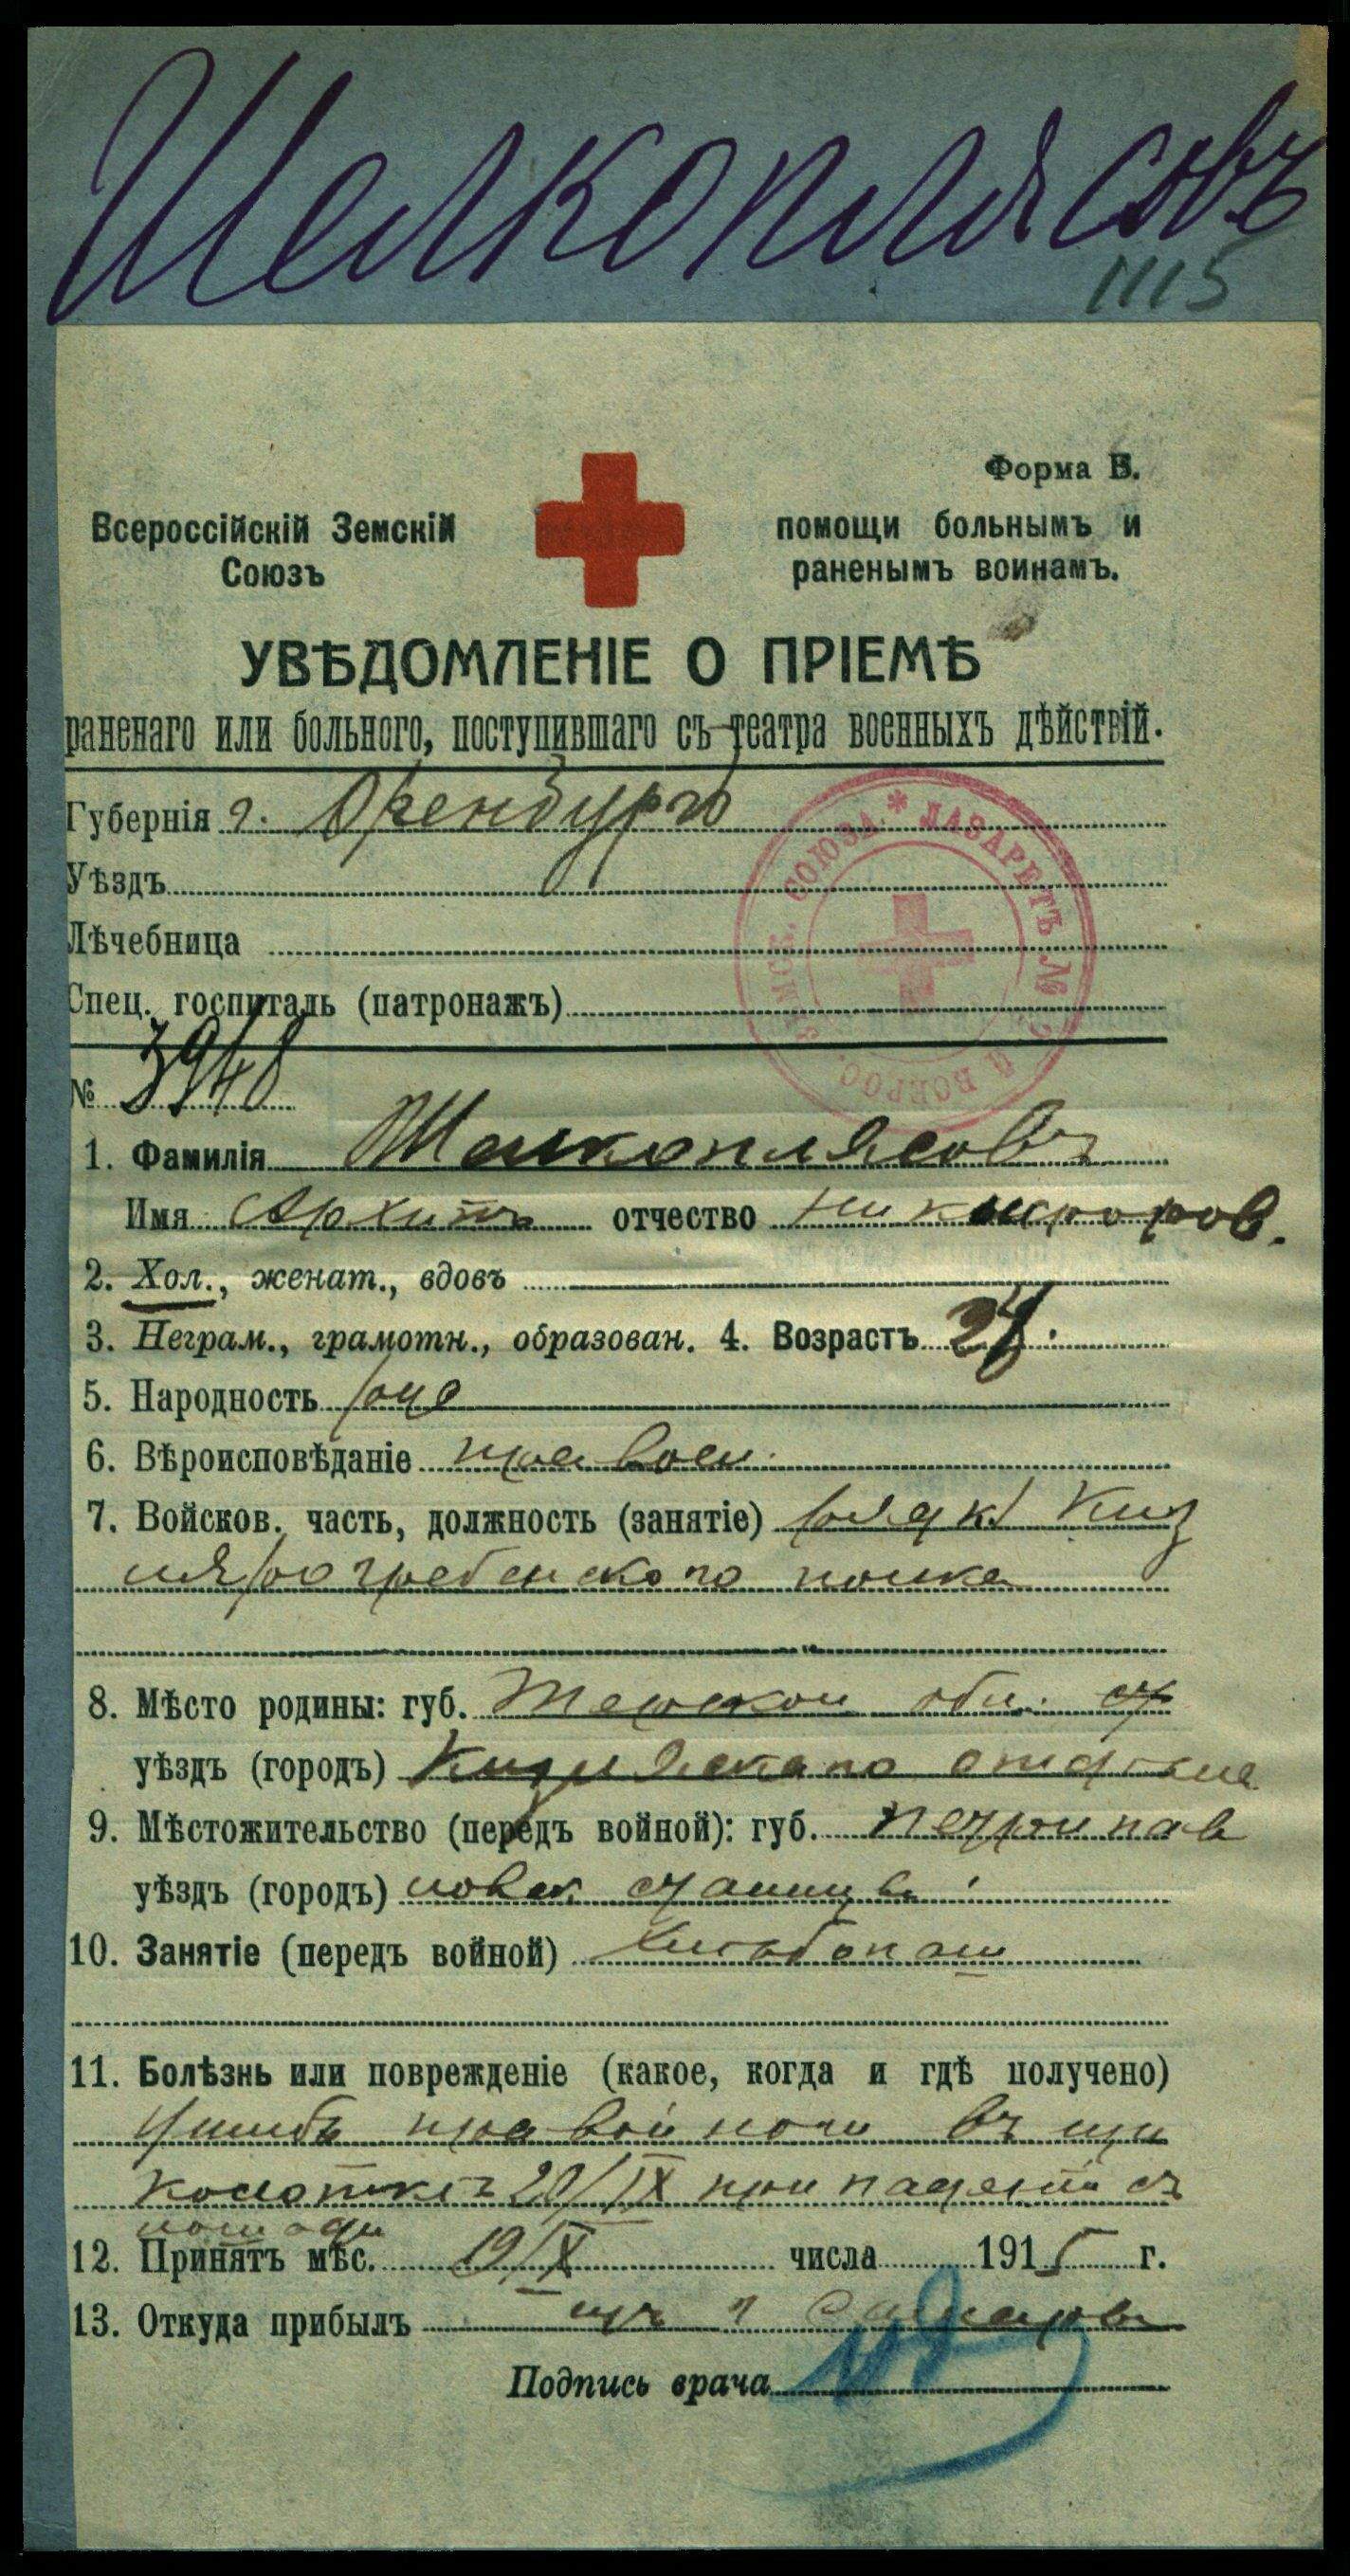 Шелкоплясовъ
1115
Форма В.
Всероссійскій Земскій Союзъ
помощи больнымъ и раненымъ воинамъ.
УВѢДОМЛЕНІЕ О ПРІЕМѢ
раненаго или больного, поступившаго съ театра военныхъ дѣйствій.
Губернія г. Оренбургъ
Уѣздъ
Лѣчебница
Спец. госпиталь (патронажъ)
СОЮЗА * ЛАЗАРЕТЪ №
№ 3948
1. Фамилія Шелкоплясовъ
Имя Архипъ отчество Никифоров.
2. Хол., женат., вдовъ
3. Неграм., грамотн., образован. 4. Возрастъ
5. Народность
6. Вѣроисповѣданіе правосл.
7. Войсков. часть, должность (занятіе) рядк Киз
лярогребенского полка
8. Мѣсто родины: губ. Терской обл.
уѣздъ (городъ) Кизлярскаго отдела
9. Мѣстожительство (передъ войной): губ. Петропав
уѣздъ (городъ) ловск станица
10. Занятіе (передъ войной) хлебопаш
11. Болѣзнь или поврежденіе (какое, когда и гдѣ получено)
Ушибъ правой ноги въ щи
колотке 20/IX при паденіи съ
лошади
12. Принятъ мѣс. 19/X числа 1915 г.
13. Откуда прибылъ изъ г Самары
Подпись врача